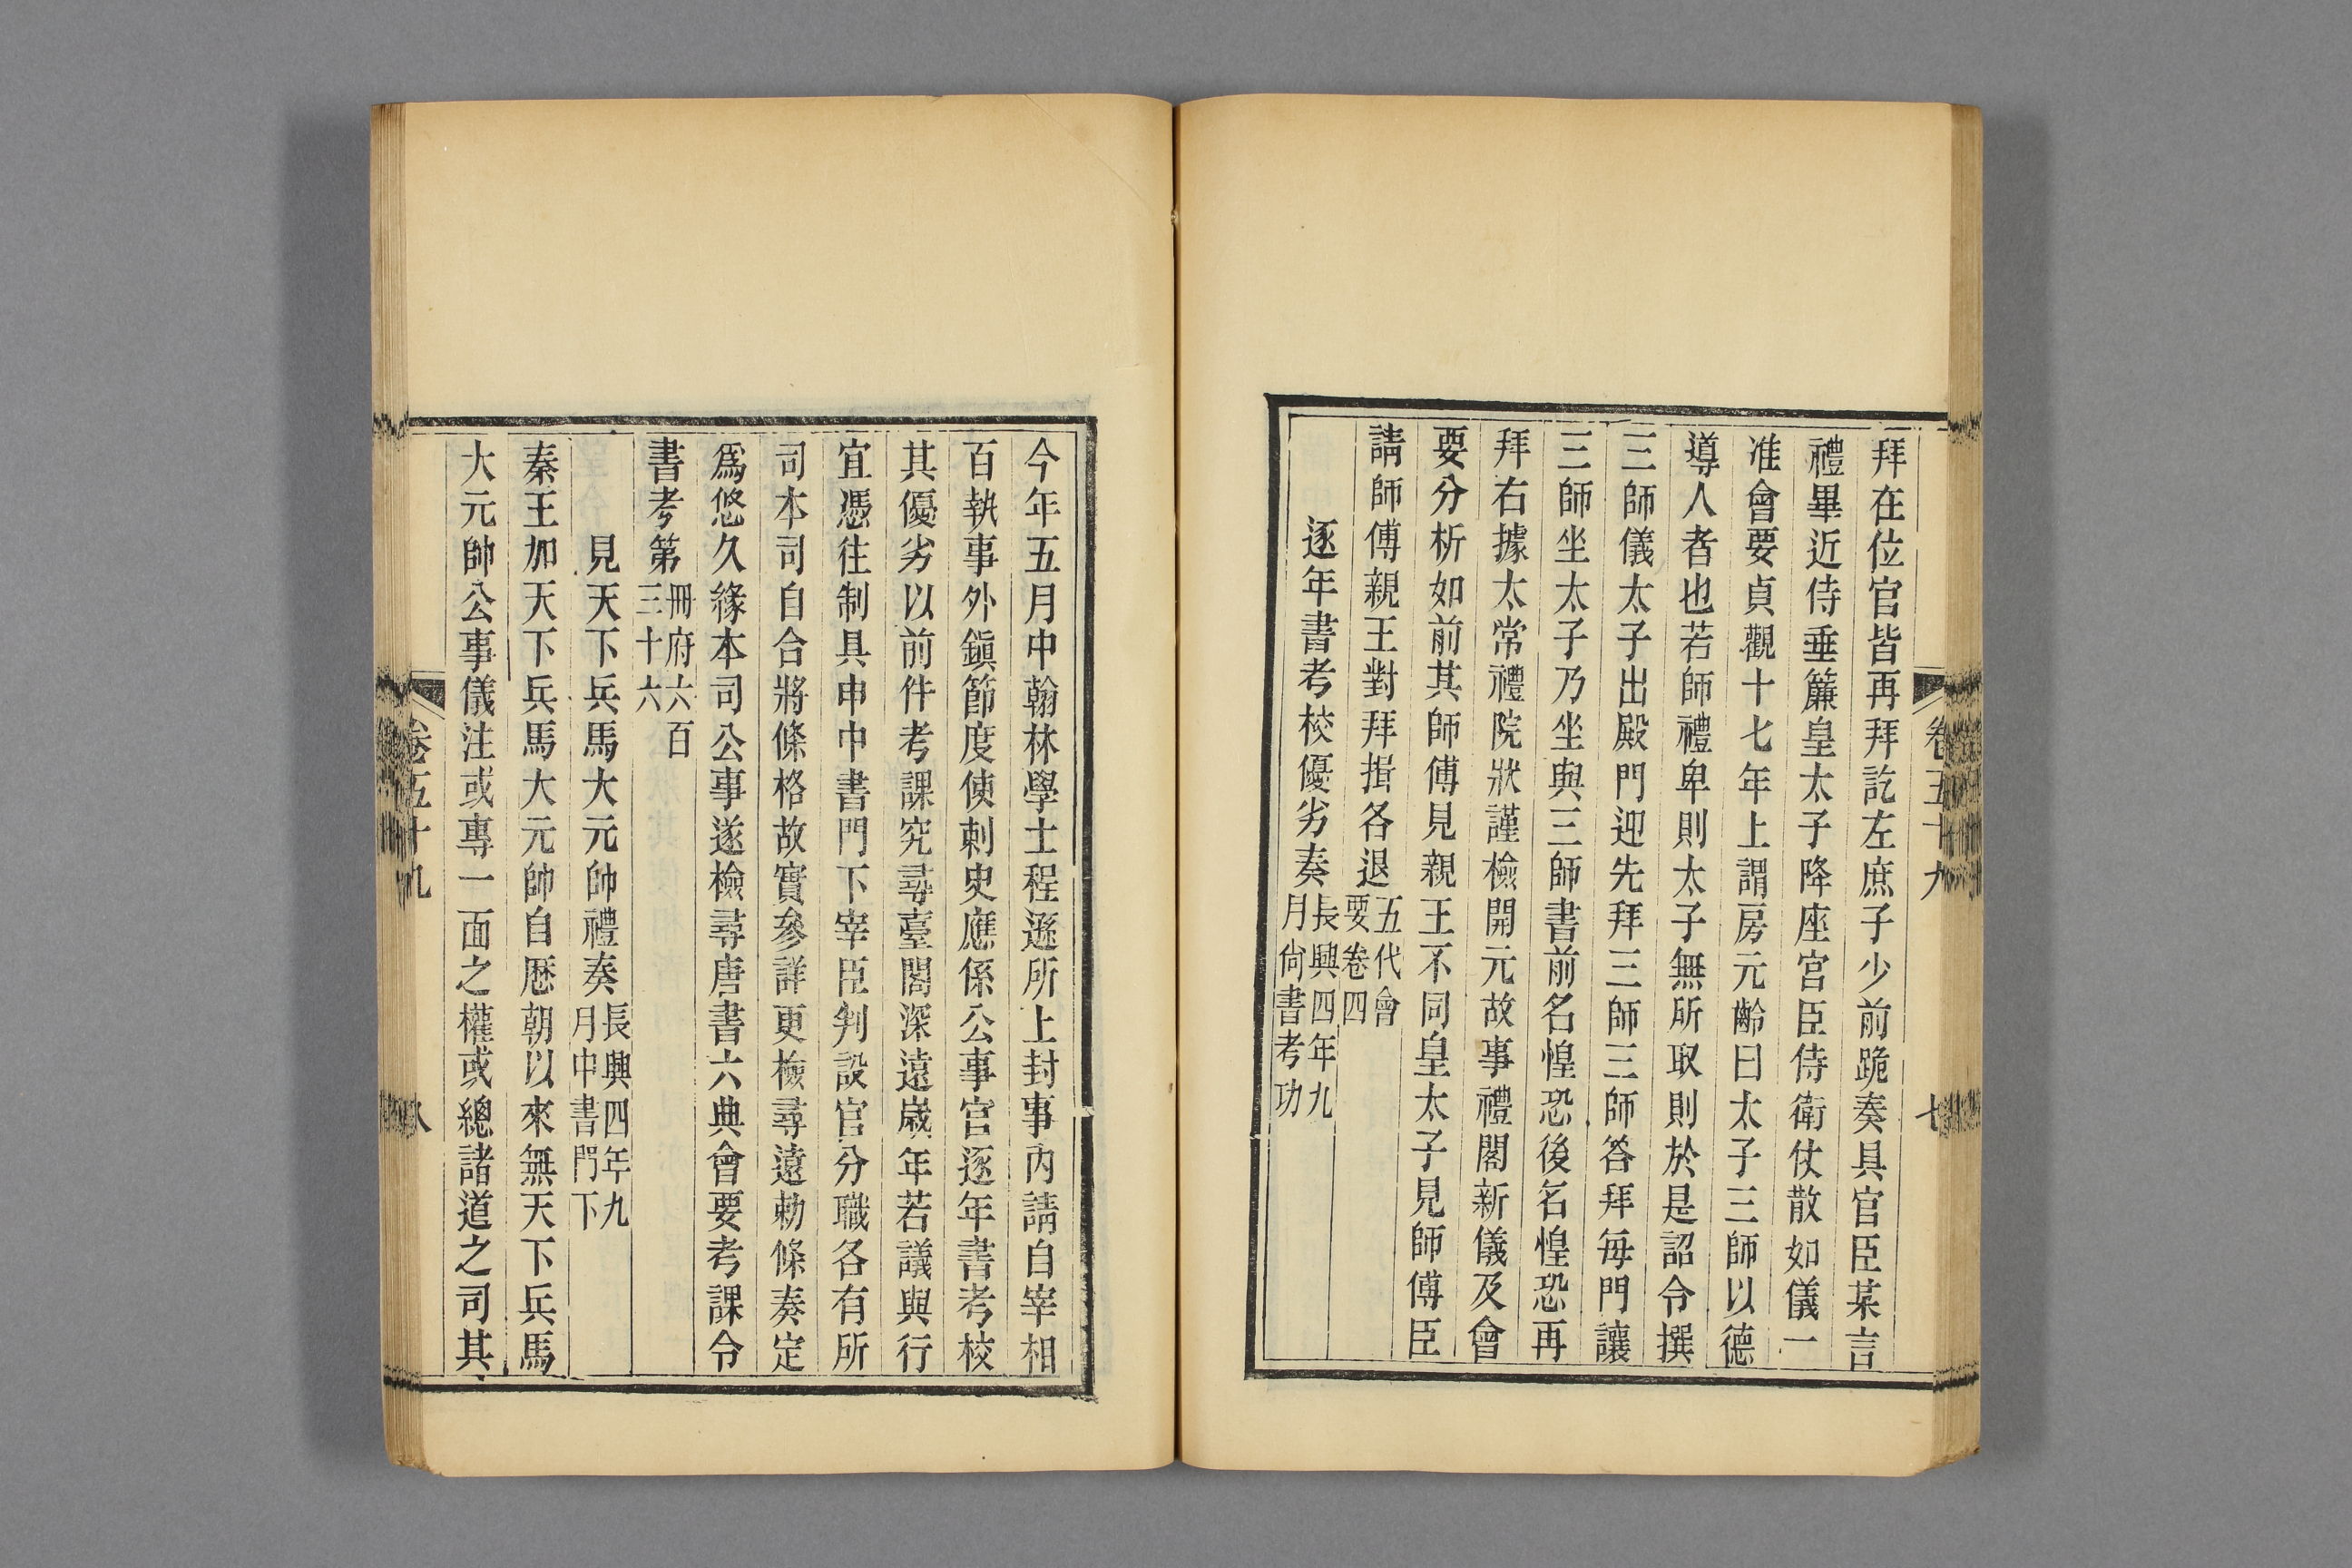 卷五十九
七
拜在位官皆再拜訖左庶子少前跪奏具官臣某言
禮畢近侍垂簾皇太子降座宮臣侍衛仗散如儀一
准會要貞觀十七年上謂房元齡曰太子三師以德
導人者也若師禮卑則太子無所取則於是詔令撰
三師儀太子出殿門迎先拜三師三師答拜每門讓
三師坐太子乃坐與三師書前名惶恐後名惶恐再
拜右據太常禮院狀謹檢開元故事禮閣新儀及會
要分析如前其師傅見親王不同皇太子見師傅臣
請師傅親王對拜揖各退五代會要卷四
逐年書考校優劣奏長興四年九月尙書考功
今年五月中翰林學士程遜所上封事內請自宰相
百執事外鎭節度使刺史應係公事官逐年書考校
其優劣以前件考課究尋臺閣深遠歲年若議與行
宜憑往制具申中書門下宰臣判設官分職各有所
司本司自合將條格故實參詳更檢尋遠勅條奏定
爲悠久緣本司公事遂檢尋唐書六典會要考課令
書考第冊府六百三十六
見天下兵馬大元帥禮奏長興四年九月中書門下
秦王加天下兵馬大元帥自厯朝以來無天下兵馬
大元帥公事儀注或專一面之權或總諸道之司其
卷五十九
八